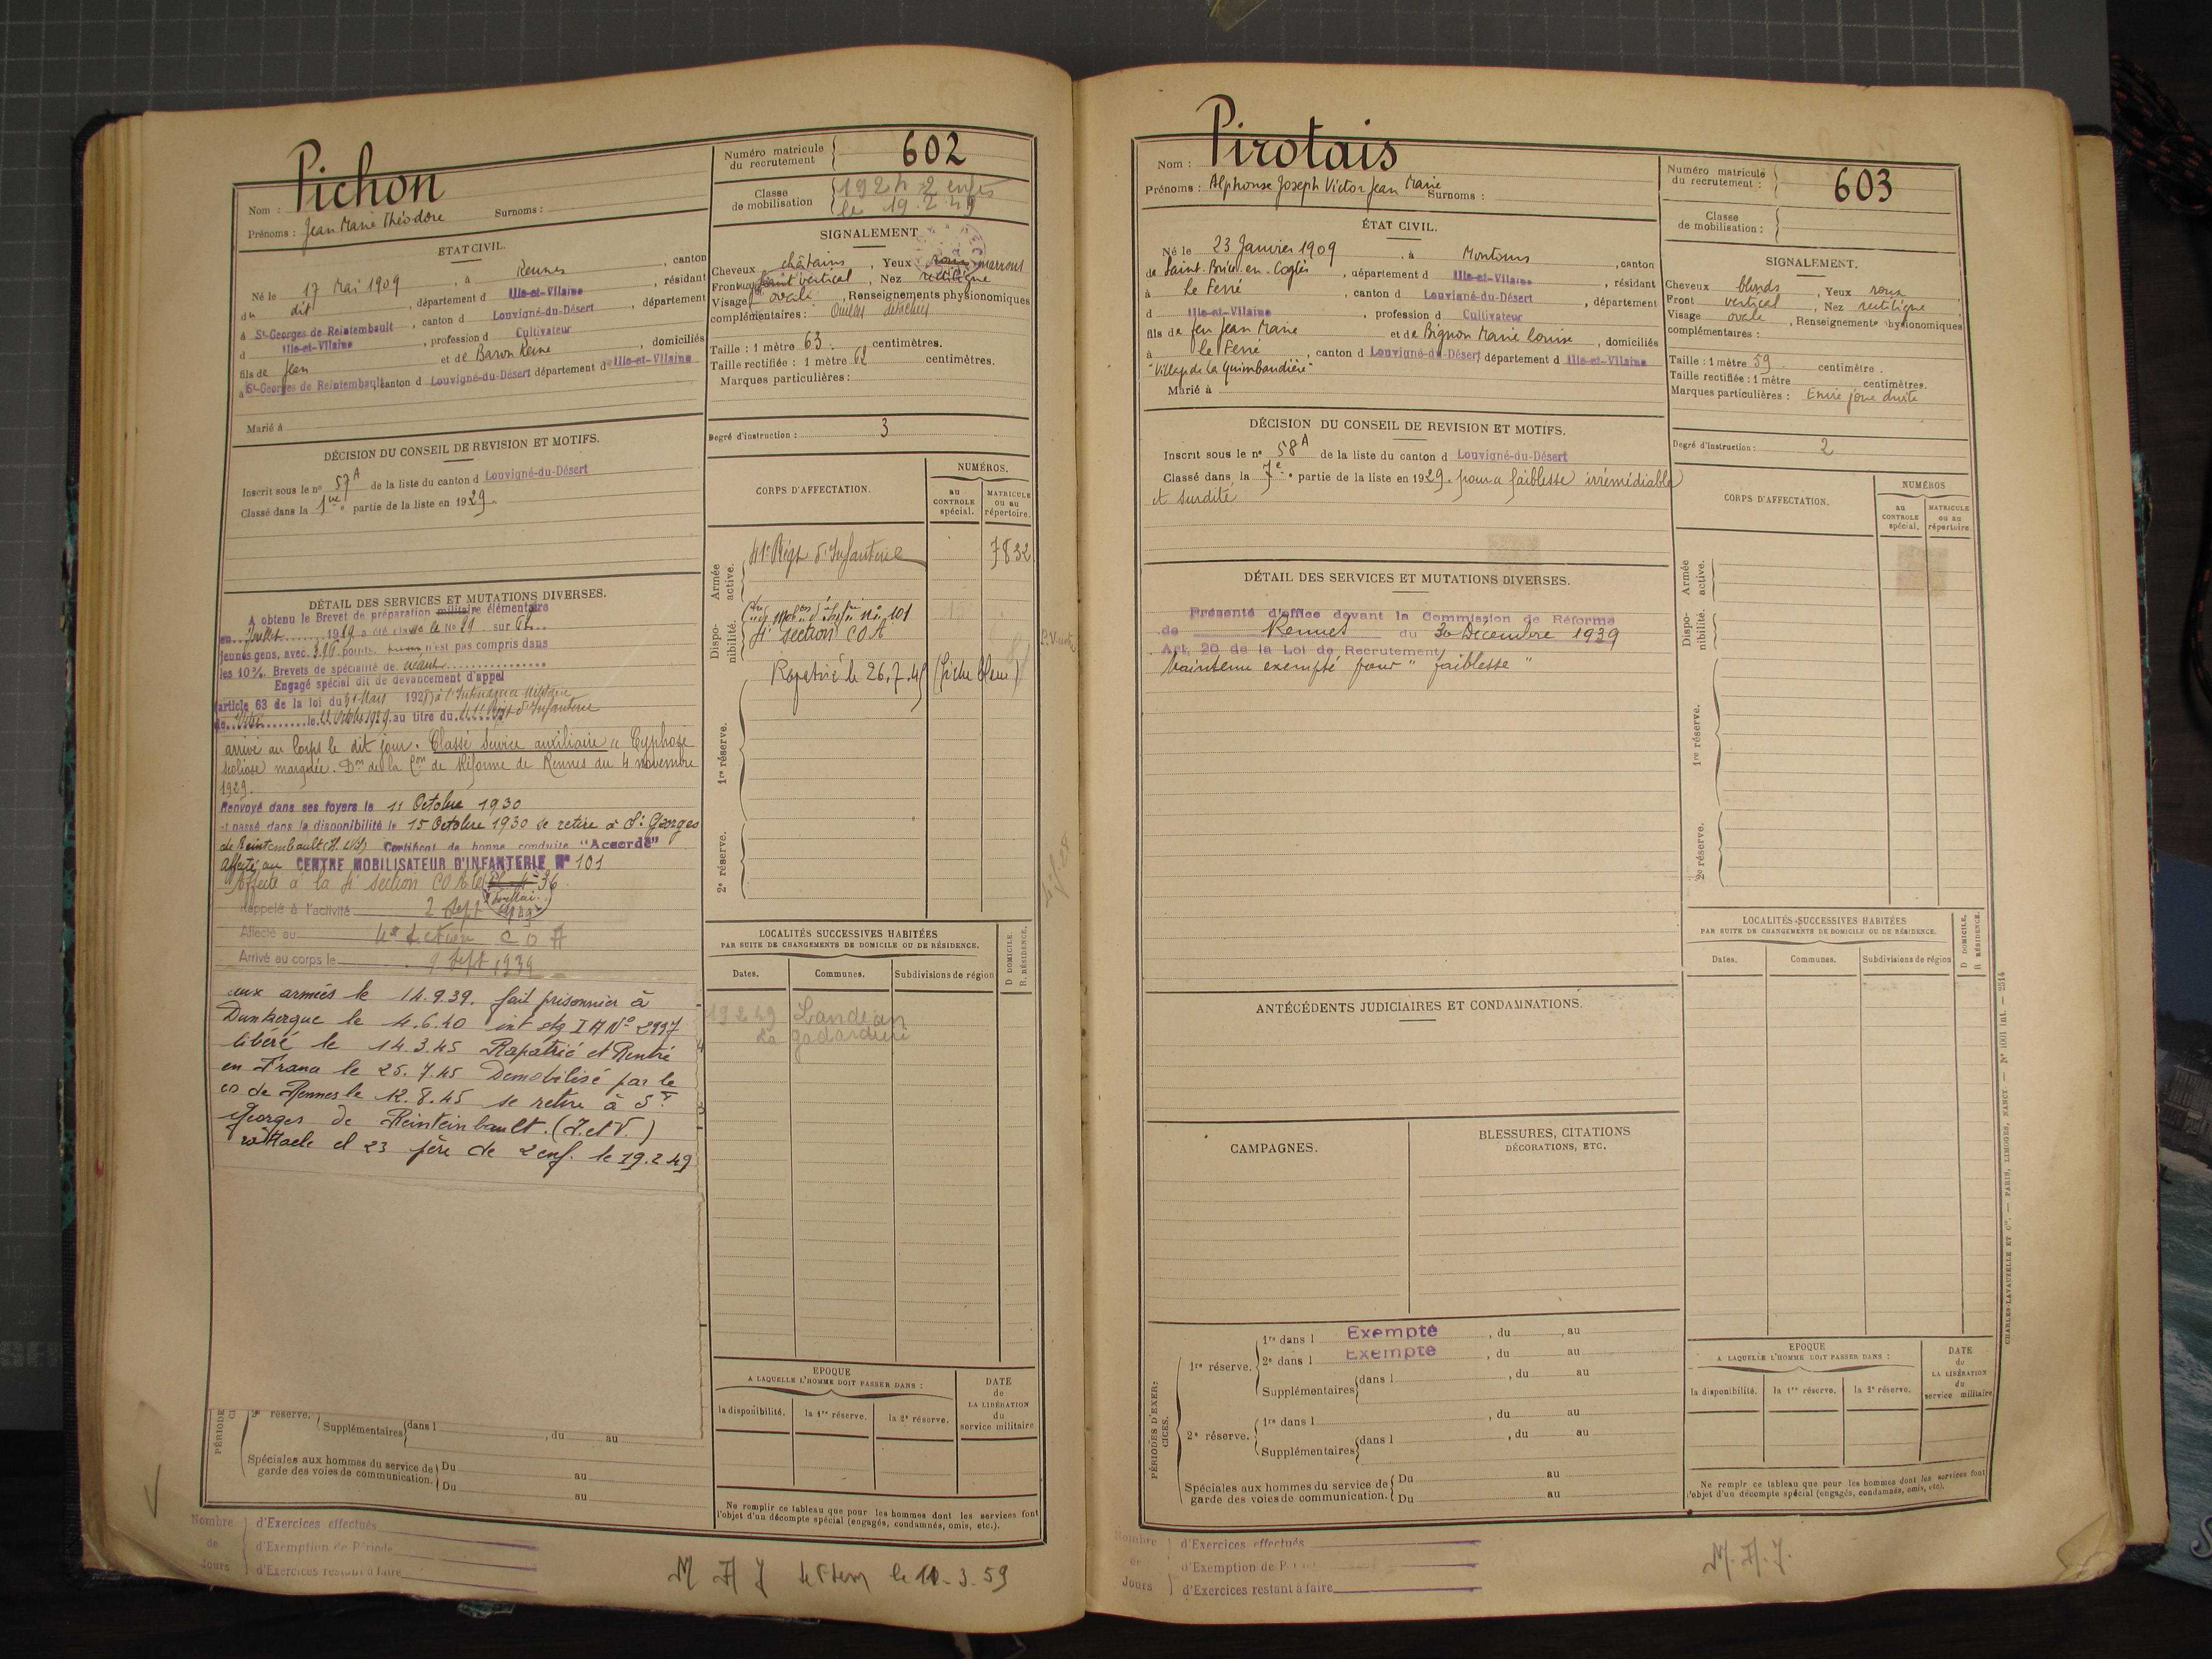 Pichon
Nom :
Prénoms : Jean Marie Théodore Surnoms :
Numéro matricule du recrutement 602
Classe de mobilisation 1924 2 enfts
le 19.2.49
ETAT CIVIL.
Né le 17 Mai 1909, à Rennes, canton
du dit, département d Ille-et-Vilaine, résidant
à St-Georges de Reintembault, canton d Louvigné-du-Désert, département
d Ille-et-Vilaine, profession d Cultivateur
fils de Jean et de Baron Reine, domiciliés
à St-Georges de Reintembault canton d Louvigné-du-Désert département d Ille-et-Vilaine
Marié à
SIGNALEMENT
Cheveux châtains, Yeux roux marrons
Front vertical, Nez rectiligne
Visage ovale, Renseignements physionomiques
complémentaires : Oreilles détachées
Taille : 1 mètre 63 centimètres.
Taille rectifiée : 1 mètre 62 centimètres.
Marques particulières :
Degré d'instruction : 3
DÉCISION DU CONSEIL DE REVISION ET MOTIFS.
Inscrit sous le n° 57A de la liste du canton d Louvigné-du-Désert
Classé dans la 1re partie de la liste en 1929.
DÉTAIL DES SERVICES ET MUTATIONS DIVERSES.
A obtenu le Brevet de préparation militaire élémentaire
en Juillet 1929 a été classé le No 29 sur 62
jeunes gens, avec points, n'est pas compris dans
les 10%. Brevets de spécialité de néant
Engagé spécial dit de devancement d'appel
article 63 de la loi du 31 Mars 1928 à l'Intendance Militaire
de Vitré le 22 Octobre 1929 au titre du 41e Régt d'Infanterie
arrivé au Corps le dit jour. Classé Service auxiliaire "Cyphose
scoliose marquée. Don de la Con de Réforme de Rennes du 4 novembre
1929.
Renvoyé dans ses foyers le 11 Octobre 1930
et passé dans la disponibilité le 15 Octobre 1930 se retire à St Georges
de Reintembault (I. et V) Certificat de bonne conduite "Accordé"
Affecté au CENTRE MOBILISATEUR D'INFANTERIE N° 101
Affecté à la 4e section COA le 36
Rappelé à l'activité 2 Sept 1939
Affecté au 4e Section C O A
Arrivé au corps le 9 Sept 1939
aux armées le 14.9.39. fait prisonnier à
Dunkerque le 4.6.40 int stg I A N° 2997
libéré le 14.3.45 Rapatrié et Rentré
en France le 25.7.45 Demobilisé par le
CD de Rennes le 12.8.45 se retire à St
Georges de Reinteinbault. (I. et V.)
cl 23 père de 2 enf. le 19.2.49
CORPS D'AFFECTATION.
NUMÉROS.
au CONTROLE spécial.
MATRICULE ou au répertoire.
Armée active.
41e Régt d'Infanterie 7832
Disponibilité.
n° 101
4e section COA
Rapatrié le 26.7.45 (fiche bleue)
1re réserve.
2e réserve.
LOCALITÉS SUCCESSIVES HABITÉES
PAR SUITE DE CHANGEMENTS DE DOMICILE OU DE RÉSIDENCE.
D DOMICILE.
R. RÉSIDENCE.
Dates. Communes. Subdivisions de région
19 2 49 Landean
La gadardière
EPOQUE
A LAQUELLE L'HOMME DOIT PASSER DANS :
la disponibilité. la 1re réserve. la 2e réserve.
DATE de LA LIBÉRATION du service militaire
PÉRIODE
2e réserve. Supplémentaires dans l , du au
Spéciales aux hommes du service de garde des voies de communication. Du au
Du au
Ne remplir ce tableau que pour les hommes dont les services font
l'objet d'un décompte spécial (engagés, condamnés, omis, etc.).
Nombre de Jours
d'Exercices effectués
d'Exemption de Période
d'Exercices restant à faire
M A J le 11.3.59
Pirotais
Nom :
Prénoms : Alphonse Joseph Victor Jean Marie Surnoms :
Numéro matricule du recrutement : 603
Classe de mobilisation :
ÉTAT CIVIL.
Né le 23 Janvier 1909, à Montours, canton
de Saint-Brice-en-Coglès, département d Ille-et-Vilaine, résidant
à Le Ferré, canton d Louvigné-du-Désert, département
d Ille-et-Vilaine, profession d Cultivateur
fils de feu Jean Marie et de Bignon Marie Louise, domiciliés
à Le Ferré, canton d Louvigné-du-Désert département d Ille-et-Vilaine
"Village de la Guimbaudière"
Marié à
SIGNALEMENT.
Cheveux blonds, Yeux roux
Front vertical, Nez rectiligne
Visage ovale, Renseignements physionomiques
complémentaires :
Taille : 1 mètre 59 centimètre.
Taille rectifiée : 1 mètre centimètres.
Marques particulières : Envie joue droite
Degré d'instruction : 2
DÉCISION DU CONSEIL DE REVISION ET MOTIFS.
Inscrit sous le n° 58A de la liste du canton d Louvigné-du-Désert
Classé dans la 7e partie de la liste en 1929. pour a faiblesse irrémédiable
et surdité
DÉTAIL DES SERVICES ET MUTATIONS DIVERSES.
Présenté d'office devant la Commission de Réforme
de Rennes du 30 Décembre 1939
Art. 20 de la Loi de Recrutement
Maintenu exempté pour "faiblesse"
CORPS D'AFFECTATION.
NUMÉROS
au CONTROLE spécial.
MATRICULE ou au répertoire.
Armée active.
Disponibilité.
1re réserve.
2e réserve.
LOCALITÉS SUCCESSIVES HABITÉES
PAR SUITE DE CHANGEMENTS DE DOMICILE OU DE RÉSIDENCE.
D DOMICILE.
R RÉSIDENCE.
Dates. Communes. Subdivisions de région
ANTÉCÉDENTS JUDICIAIRES ET CONDAMNATIONS.
CAMPAGNES.
BLESSURES, CITATIONS
DÉCORATIONS, ETC.
PÉRIODES D'EXERCICES.
1re réserve. 1re dans l Exempté, du, au
2e dans l Exempté, du au
Supplémentaires dans l , du au
2e réserve. 1re dans l , du au
Supplémentaires dans l , du au
Spéciales aux hommes du service de garde des voies de communication. Du au
Du au
EPOQUE
A LAQUELLE L'HOMME DOIT PASSER DANS :
la disponibilité. la 1re réserve. la 2e réserve.
DATE de LA LIBÉRATION du service militaire
Ne remplir ce tableau que pour les hommes dont les services font
l'objet d'un décompte spécial (engagés, condamnés, omis, etc).
CHARLES-LAVAUZELLE ET Cie. — PARIS, LIMOGES, NANCY. — N° 1001 int. — 2514
Nombre de Jours
d'Exercices effectués
d'Exemption de P
d'Exercices restant à faire
M.A.J.